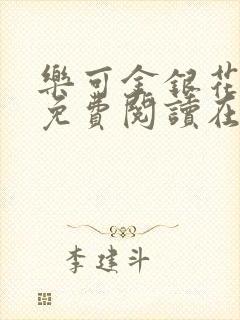 樂可金銀花
免費閱讀在
李建斗